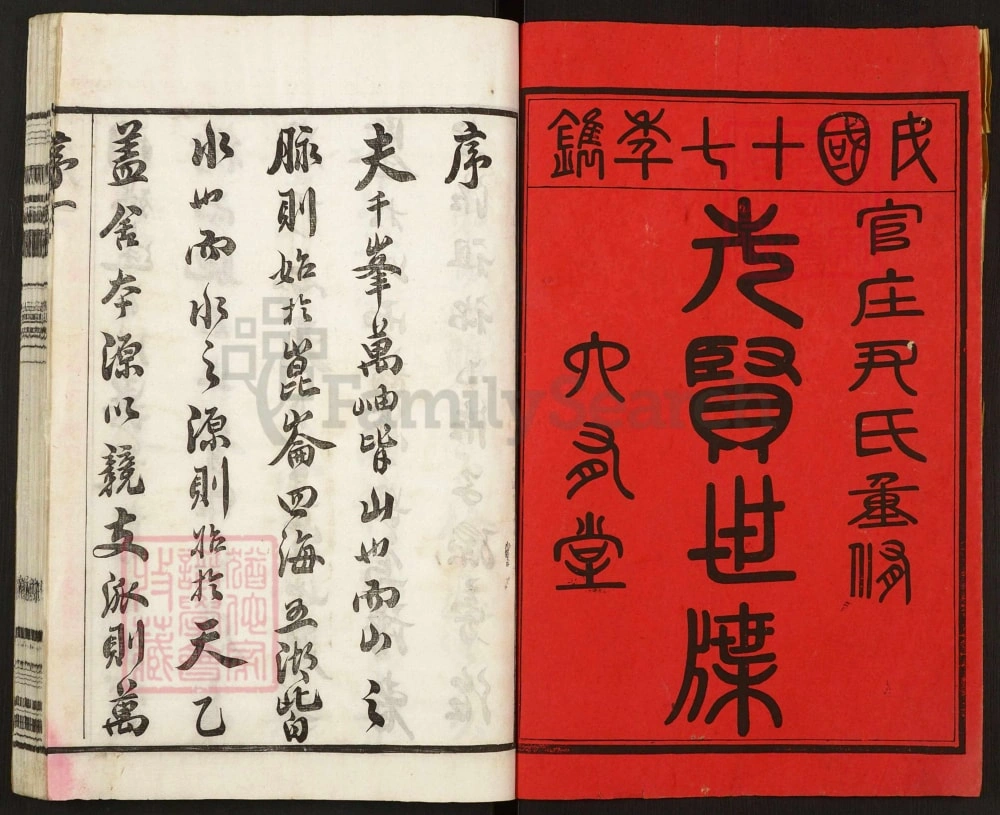 民國十七季鐫
官庄尹氏重修
先賢世牒
六有堂
序
夫千峯萬岫皆山也而山之
脉則始於崑崙四海五湖皆
水也而水之源則始於天乙
盖舍本源以競支派則萬
序一
FamilySearch